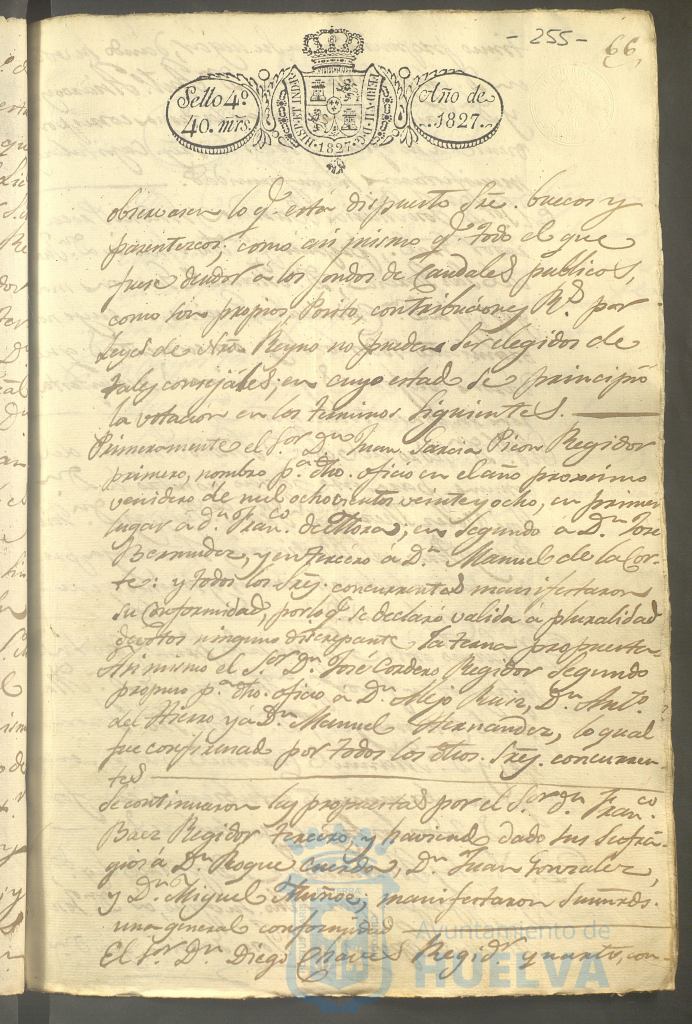 - 255 -
66,
Sello 4º
40. mrs.
HISP. ET IND. R
FERD. VII. D. G.
1827
Año de
1827.
observasen lo q. está dispuesto Sre. huecos y
parentezcos, como asi mismo q. todo el que
fuese deudor á los fondos de Caudales publicos,
como son propios, Posito, contribuciones Rs. por
Leyes de Ntro Reyno no pueden ser elegidos de
tales consejales; en cuyo estado se principió
la votacion en los terminos siguientes.
Primeramente el Sor. Dn. Juan Garcia Picon Regidor
primero, nombró pa. dho. oficio en el año proximo
venidero de mil ochocientos veinte y ocho, en primer
lugar á dn. Franco. de Mora; en segundo a Dn. José
Bermudez, y en tercero a Dn. Manuel de la Cor-
te: y todos los Sres. concurrentes manifestaron
su conformidad, por lo q. se declaró valida á pluralidad
de votos ninguno discrepante la terna propuesta
Asi mismo el Sor. Dn. José Cordero Regidor Segundo
propuso pa. dho. oficio á Dn. Alejo Ruiz, Dn. Anto.
del Hierro y a Dn. Manuel Hernandez, lo qual
fue confirmado por todos los dhos. Sres. concurren-
tes
Se continuaron las propuestas por el Sor. dn. Franco.
Baez Regidor tercero, y haviendo dado sus sufra-
gios á Dn. Roque Cuerda, Dn. Juan Gonzalez,
y Dn. Miguel Muñoz, manifestaron Sumrds.
una general conformidad
El Sor. Dn. Diego Chaves Regidr. quarto, con-
Ayuntamiento de
HUELVA